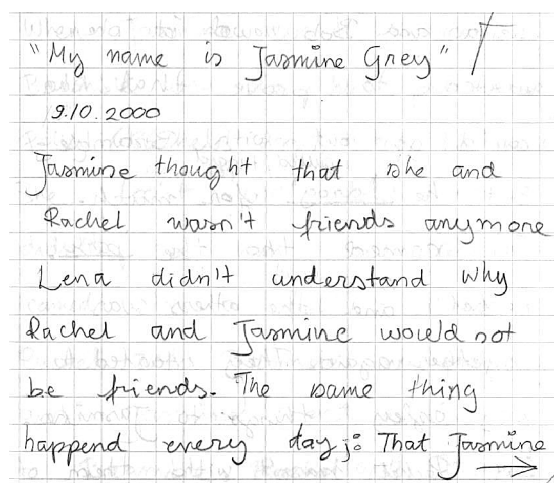 "My name is Jasmine Grey"
9.10.2000
Jasmine thought that she and
Rachel wasn't friends anymore
Lena didn't understand why
Rachel and Jasmine would not
be friends. The same thing
happend every day: That Jasmine